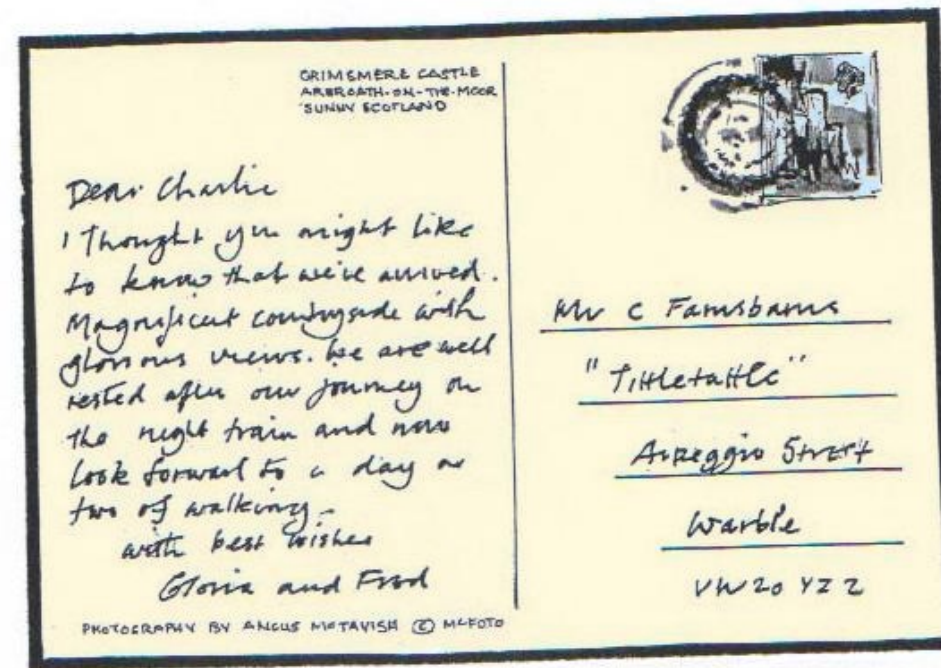 GRIMSMERE CASTLE
ARBROATH-ON-THE-MOOR
SUNNY SCOTLAND
Dear Charlie
I Thought you might like
to know that we've arrived.
Magnificent countryside with
glorious views. We are well
rested after our journey on
the night train and now
look forward to a day or
two of walking.
with best wishes
Gloria and Fred
PHOTOGRAPHY BY ANGUS McTAVISH © McFOTO
Mr C Farnsbarns
"Tittletattle"
Arpeggio Street
Warble
VW20 YZ2